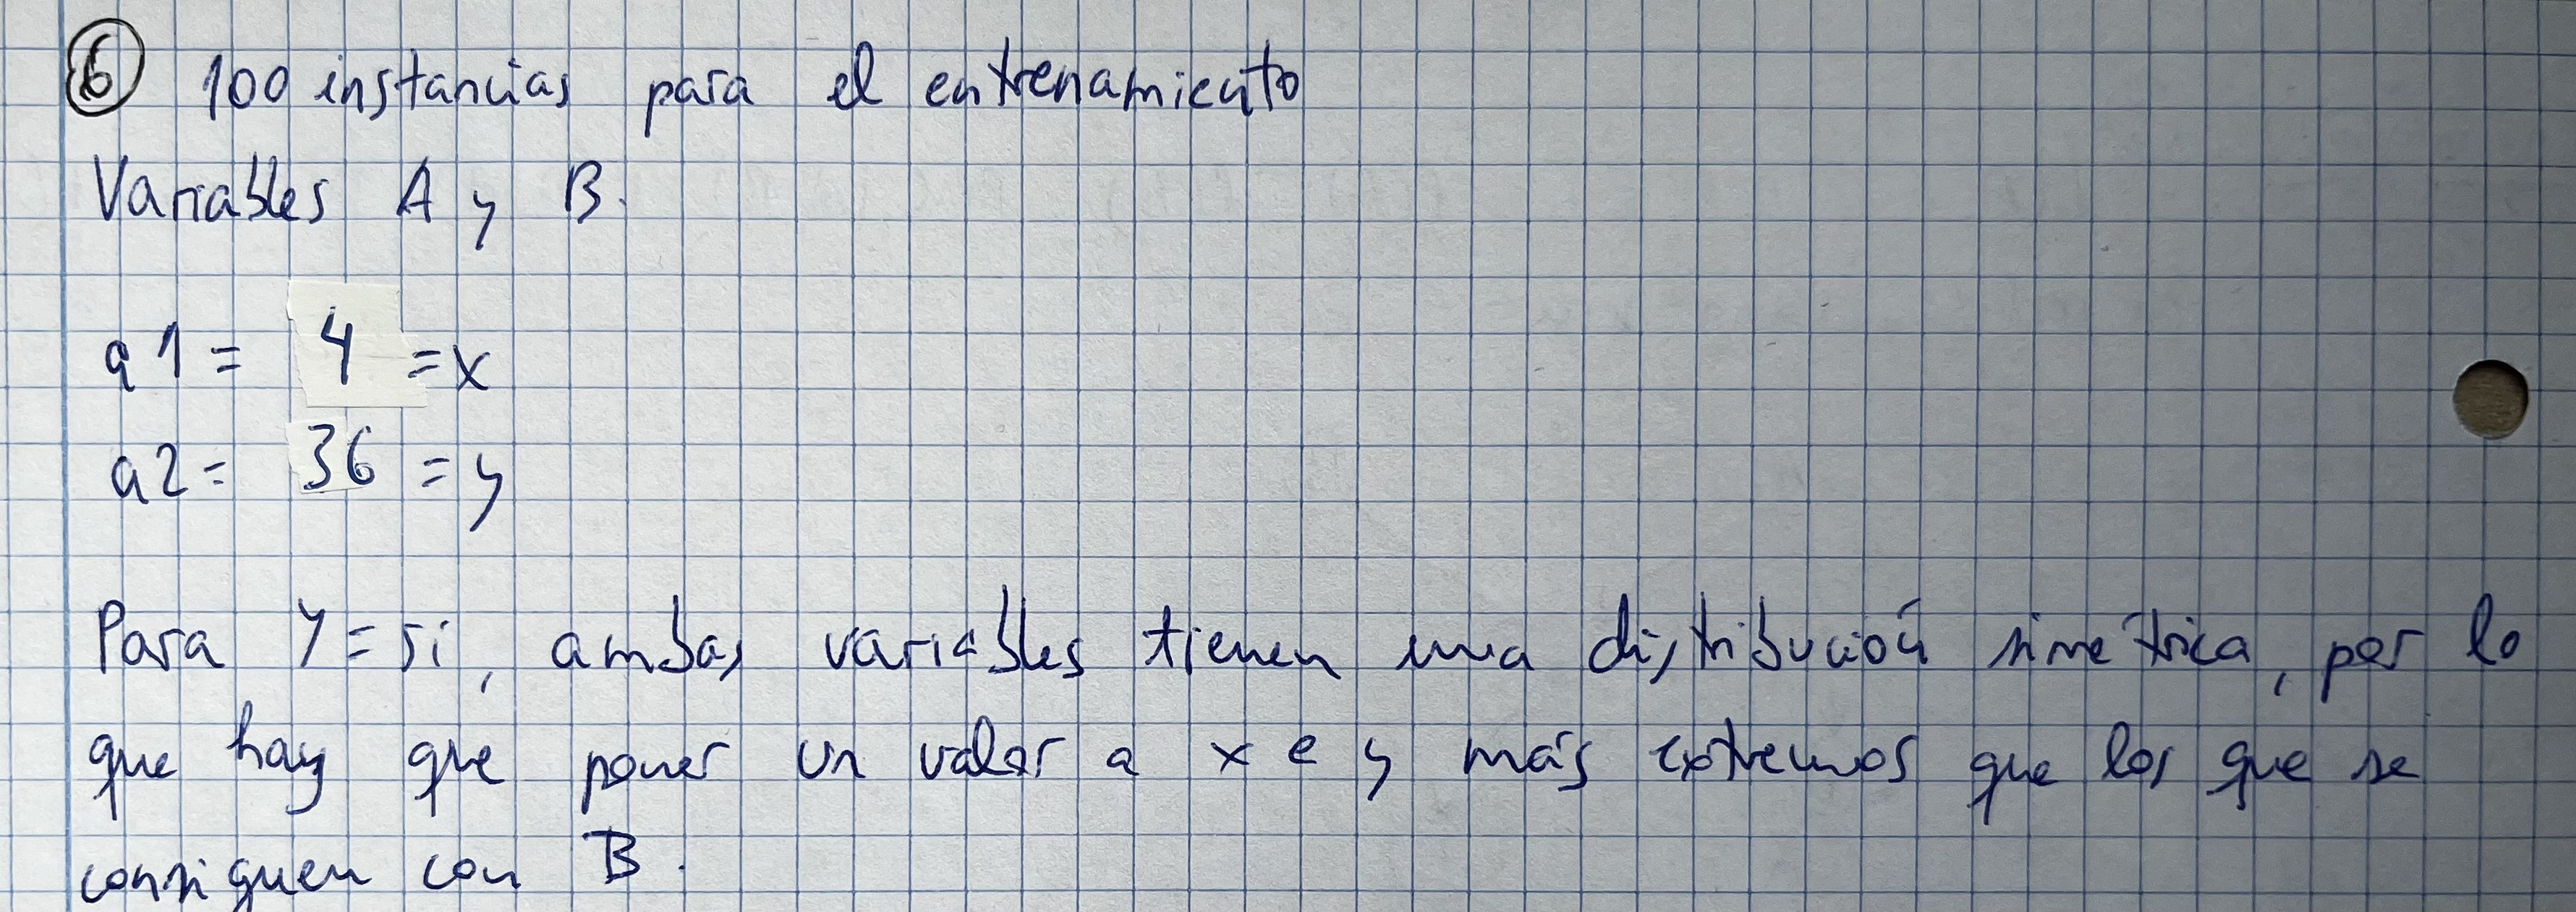 6 100 instancias para el entrenamiento
Variables A y B.
a1 = 4 = x
a2 = 36 = y
Para Y = si, ambas variables tienen una distribución simétrica, por lo
que hay que poner un valor a x e y más extremos que los que se
consiguen con B.